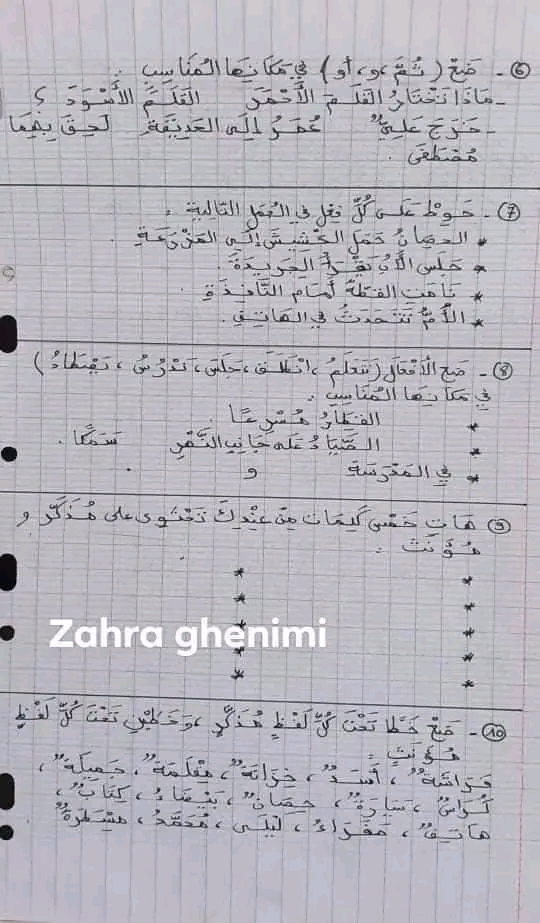 ⑥ - ضَعْ ( ثُمَّ ، و ، أو ) في مَكَانِهَا المُنَاسِبِ :
- مَاذَا تَخْتَارُ القَلَمَ الأَحْمَرَ القَلَمَ الأَسْوَدَ ؟
- خَرَجَ عَلِيٌّ عُمَرُ إِلَى الحَدِيقَةِ لَحِقَ بِهِمَا
مُصْطَفَى .
⑦ - حَوِّطْ عَلَى كُلِّ فِعْلٍ فِي الجُمَلِ التَّالِيَةِ :
* الحِصَانُ حَمَلَ الحَشِيشَ إِلَى المَزْرَعَةِ .
* جَلَسَ الأَبُ يَقْرَأُ الجَرِيدَةَ .
* نَامَتِ القِطَّةُ أَمَامَ النَّافِذَةِ .
* الأُمُّ تَتَحَدَّثُ فِي الهَاتِفِ .
⑧ - ضَعِ الأَفْعَالَ ( نَتَعَلَّمُ ، انْطَلَقَ ، جَلَسَ ، نَدْرُسُ ، يَصْطَادُ )
فِي مَكَانِهَا المُنَاسِبِ :
* القِطَارُ مُسْرِعًا
* الصَّيَّادُ عَلَى جَانِبِ النَّهْرِ سَمَكًا .
* فِي المَدْرَسَةِ و .
⑨ - هَاتِ خَمْسَ كَلِمَاتٍ مِنْ عِنْدِكَ تَحْتَوِي عَلَى مُذَكَّرٍ و
مُؤَنَّثٍ :
* *
* *
* *
* *
* *
Zahra ghenimi
⑩ - ضَعْ خَطًّا تَحْتَ كُلِّ لَفْظٍ مُذَكَّرٍ ، وَخَطَّيْنِ تَحْتَ كُلِّ لَفْظٍ
مُؤَنَّثٍ :
فَرَاشَةٌ ، أَسَدٌ ، خِزَانَةٌ ، مِقْلَمَةٌ ، جَمِيلَةٌ ،
كُرَّاسٌ ، سَيَّارَةٌ ، حِصَانٌ ، بَيْضَاءُ ، كِتَابٌ ،
هَاتِفٌ ، صَفْرَاءُ ، لَيْلَى ، مُحَمَّدٌ ، مِسْطَرَةٌ